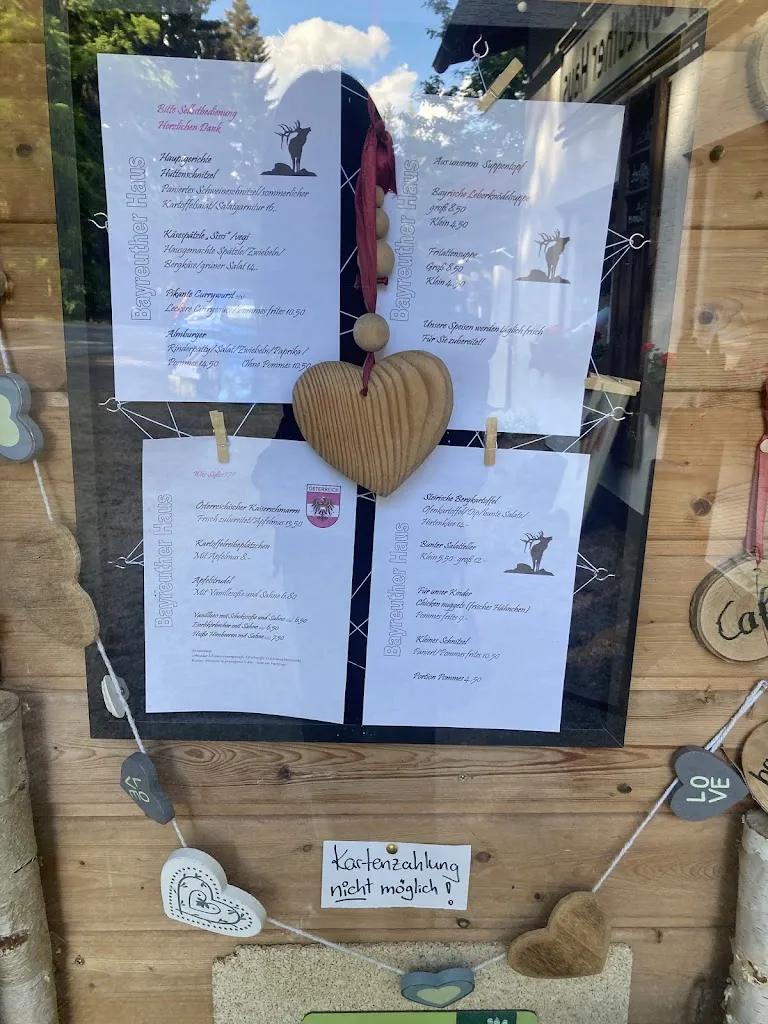 Bayreuther Haus
Bitte Selbstbedienung
Herzlichen Dank
Hauptgerichte
Hüttenschnitzel
Paniertes Schweineschnitzel/sommerlicher
Kartoffelsalat/Salatgarnitur 16,-
Käsespätzle „Sissi“/vegi
Hausgemachte Spätzle/Zwiebeln/
Bergkäse/grüner Salat 14,-
Pikante Currywurst
Leckere Currywurst Pommes frites 10,50
Almburger
Rinderpatty/Salat/Zwiebeln/Paprika/
Pommes 14,50 Ohne Pommes 10,50
Bayreuther Haus
Aus unserem Suppentopf
Bayrische Leberknödelsuppe
groß 8,50
Klein 4,50
Fritattensuppe
Groß 8,50
Klein 4,50
Unsere Speisen werden täglich frisch
Für Sie zubereitet!
Bayreuther Haus
Was Süßes???
ÖSTERREICH
Österreichischer Kaiserschmarrn
Frisch zubereitet/Apfelmus 13,50
Kartoffelreibeplätzchen
Mit Apfelmus 8,-
Apfelstrudel
Mit Vanillesoße und Sahne 6,80
Vanilleeis mit Schokosoße und Sahne 6,50
Eierlikörbecher mit Sahne 6,50
Heiße Himbeeren mit Sahne 7,50
Bayreuther Haus
Steirische Bergkartoffel
Ofenkartoffel/Dip/bunte Salate/
Hirtenkäse 14,-
Bunter Salatteller
Klein 5,50 groß 12,-
Für unsere Kinder
Chicken nuggets (frischer Hähnchen)
Pommes frites 9,-
Kleines Schnitzel
Paniert/Pommes frites 10,50
Portion Pommes 4,50
LOVE
Kartenzahlung
nicht möglich!